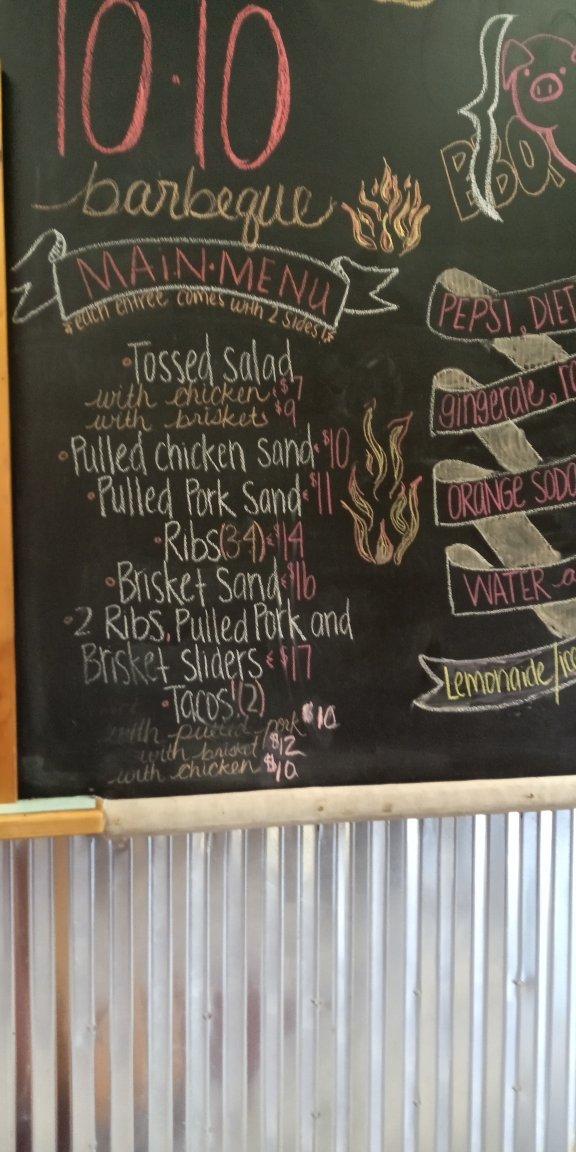 10·10
barbeque
MAIN·MENU
*each entree comes with 2 sides!*
•Tossed salad
with chicken $7
with briskets $9
•Pulled chicken Sand $10
•Pulled Pork Sand $11
•Ribs(3-4) $14
•Brisket Sand $16
•2 Ribs, Pulled Pork and
Brisket sliders $17
•Tacos (2)
with pulled pork $10
with brisket $12
with chicken $10
BBQ
PEPSI, DIET
gingerale,
ORANGE SODA
WATER
Lemonade/